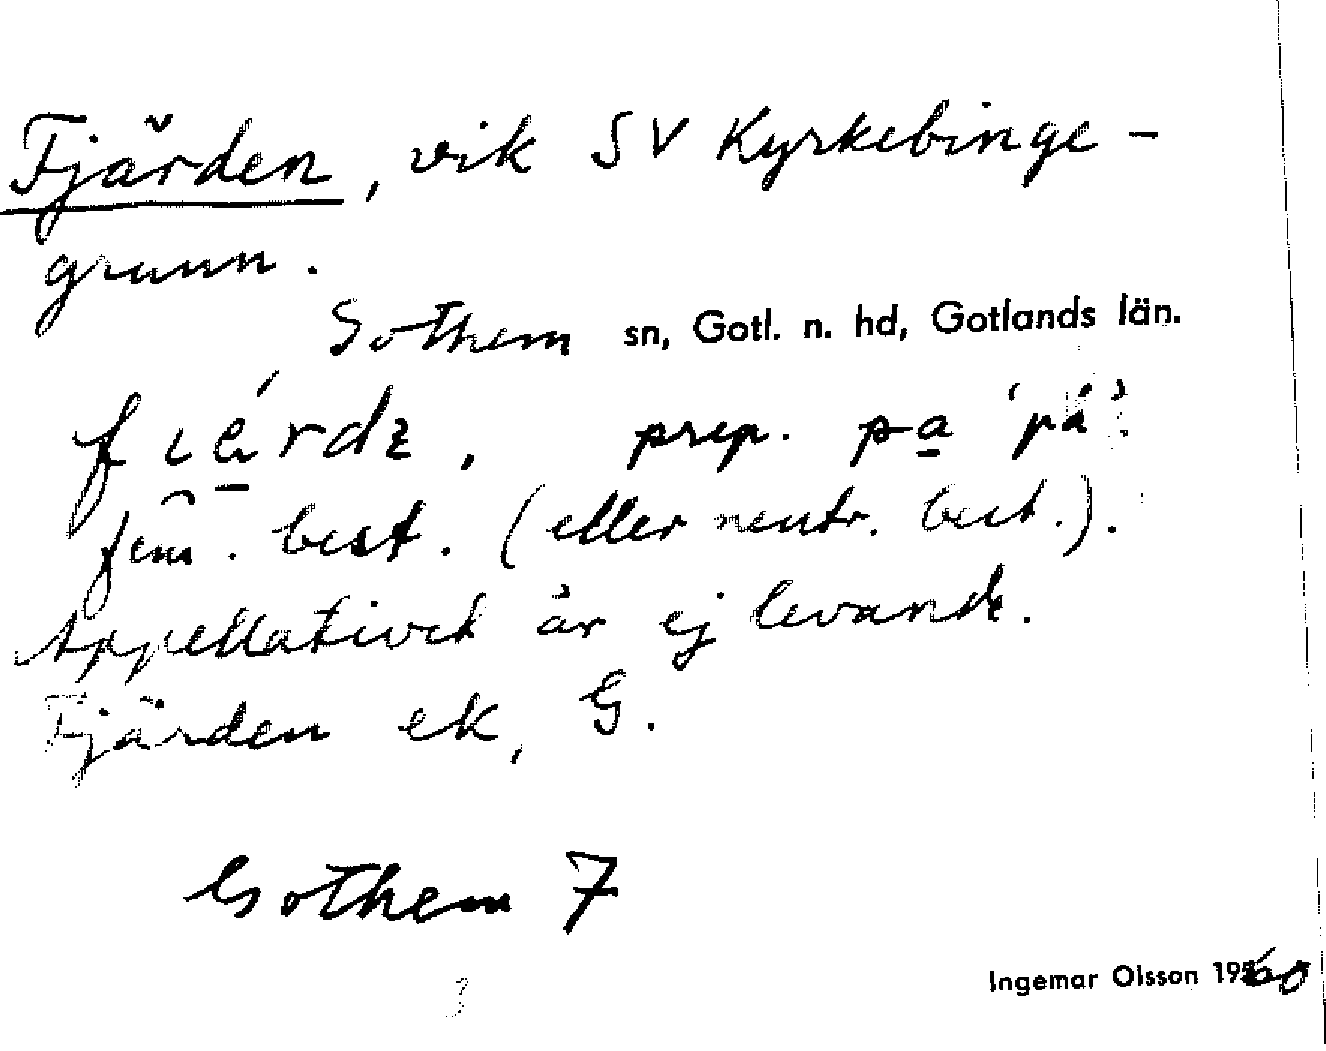 Fjärden, vik SV Kyrkebinge-
grunn.
Gothem sn, Gotl. n. hd, Gotlands län.
prep. pa 'på'.
fem. best. (eller neutr. best.).
Appellativet är ej levande.
Fjärden ek, G.
Gothem 7
Ingemar Olsson 1960